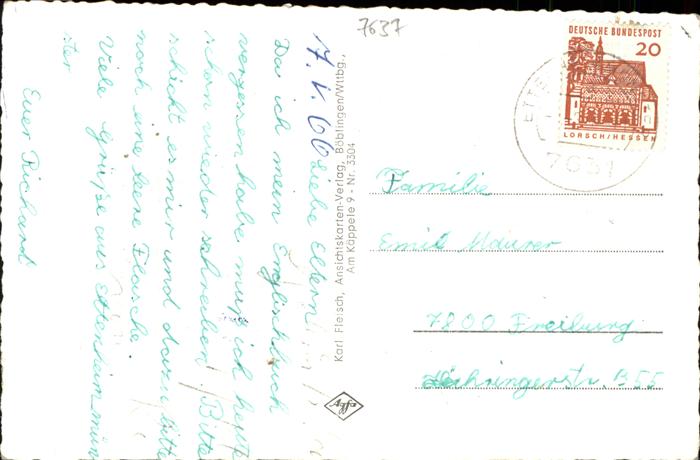 7637
7. V. 66
Liebe Eltern!
Da ich mein Englischbuch
vergessen habe muß ich heute
schon wieder schreiben. Bitte
schickt es mir und dazu bitte
noch eine leere Flasche.
Viele Grüße aus Ettenheimmün
ster
Euer Richard
Karl Fleisch, Ansichtskarten-Verlag, Böblingen/Wttbg.,
Am Käppele 9 - Nr. 3304
Agfa
DEUTSCHE BUNDESPOST
20
LORSCH/HESSEN
ETTE
7631
Familie
Emil Maurer
7800 Freiburg
Zähringerstr. 355